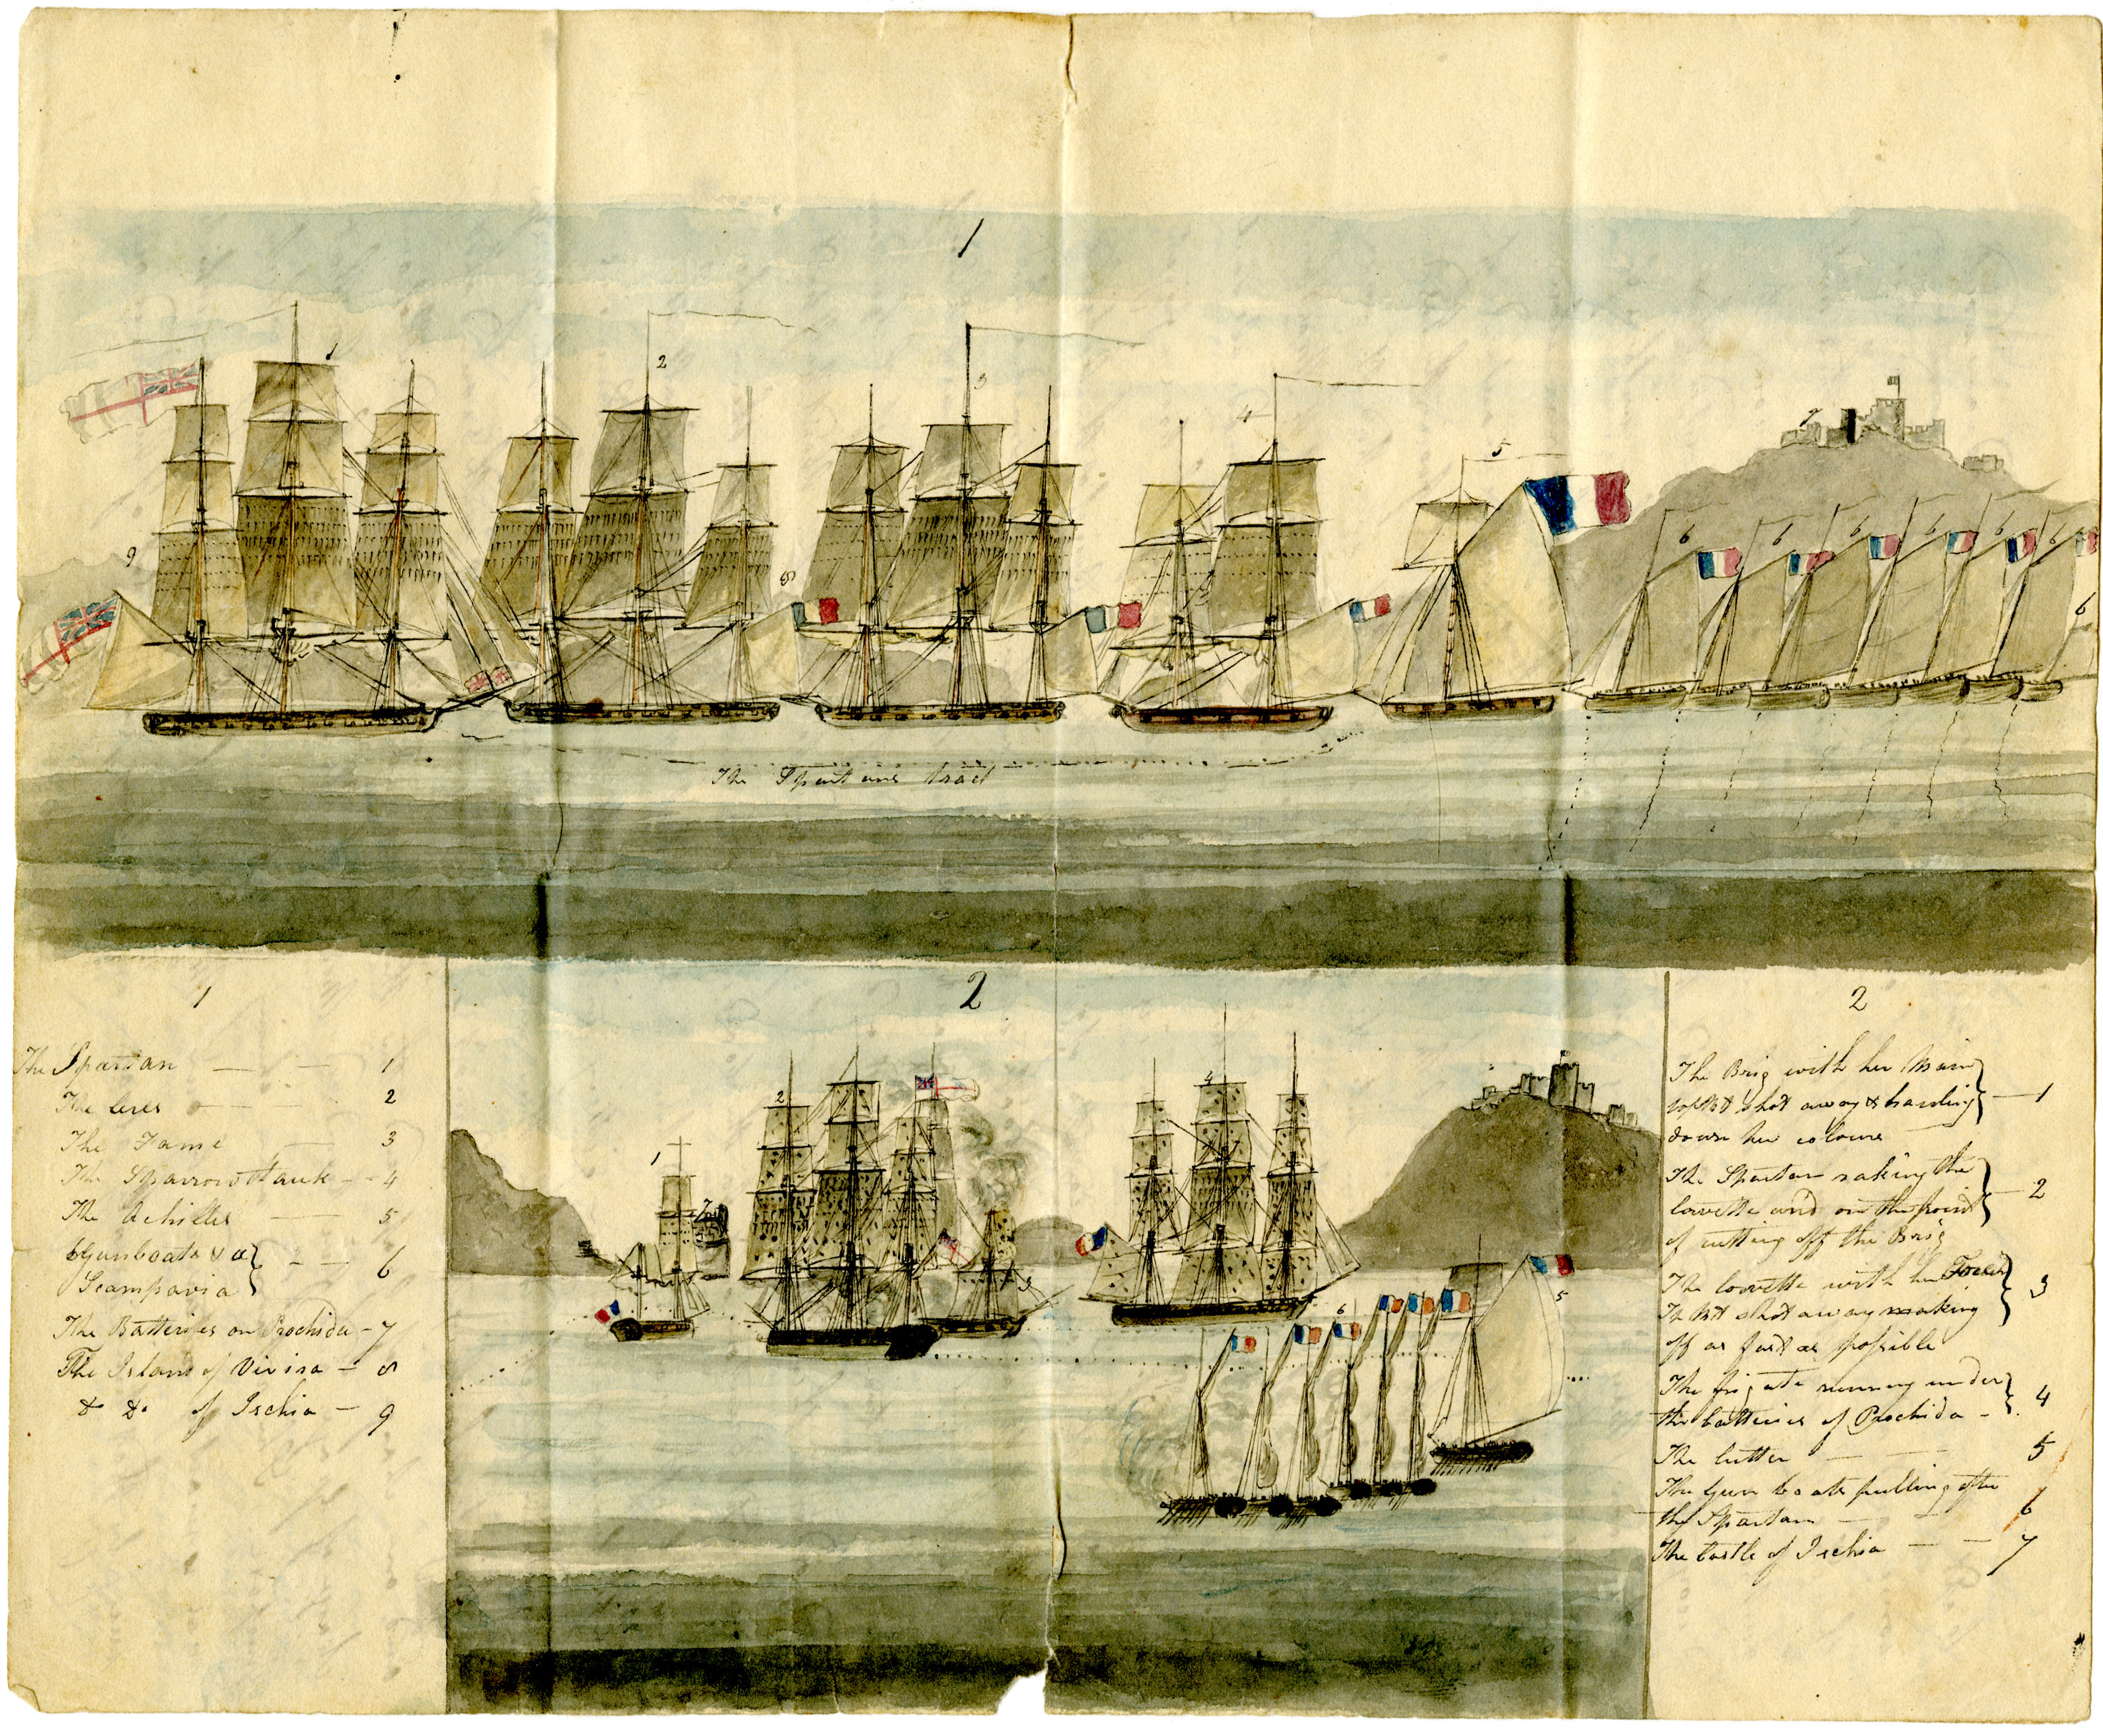 1
1
2
3
4
5
7
6
6
6
6
6
6
9
8
6
The Spartans track
1
The Spartan — — 1
The Ceres — — 2
The Fame — 3
The Sparrow Hawk - - 4
The Achilles — 5
6 Gunboats & a } - — 6
Scampavia
The Batteries on Prochida - 7
The Island of Vivira — 8
Do Do of Ischia — 9
2
1
2
7
3
4
5
6
2
The Brig with her Main
topmt shot away & hauling } — 1
down her colours
The Spartan raking the
Corvette and on the point } — 2
of cutting off the Brig
The Corvette with her Fore
Topmt shot away making } 3
off as fast as possible
The frigate running under
the batteries of Prochida - } 4
The Cutter — — 5
The Gun boats pulling after
the Spartan — — 6
The Castle of Ischia — — 7